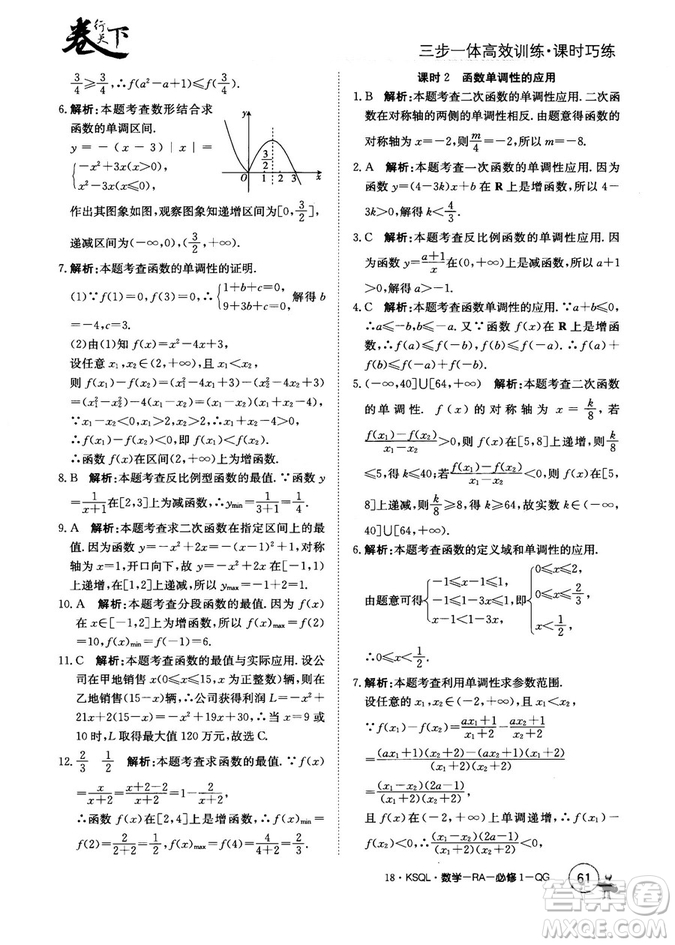 卷行天下
三步一体高效训练·课时巧练
3/4≥3/4，∴f(a²－a＋1)≤f(3/4).
6. 解析：本题考查数形结合求
函数的单调区间.
y＝－(x－3)|x|＝
{－x²＋3x(x>0),
x²－3x(x≤0).
3/2
O 1 2 3 x
作出其图象如图，观察图象知递增区间为[0, 3/2]，
递减区间为(－∞,0)，(3/2,＋∞).
7. 解析：本题考查函数的单调性的证明.
(1)∵f(x)为二次函数且
{1＋b＋c＝0,
9＋3b＋c＝0,
解得 b
＝－4，c＝3.
(2)由(1)知 f(x)＝x²－4x＋3.
设任意 x₁,x₂∈(2,＋∞)，且 x₁<x₂，
则 f(x₁)－f(x₂)＝(x₁²－4x₁＋3)－(x₂²－4x₂＋3)
＝(x₁²－x₂²)－4(x₁－x₂)＝(x₁－x₂)(x₁＋x₂－4)，
∵x₁－x₂<0，x₁>2，x₂>2，∴x₁＋x₂－4>0.
∴f(x₁)－f(x₂)<0，即 f(x₁)<f(x₂).
∴函数 f(x)在区间(2,＋∞)上是增函数.
8. B 解析：本题考查反比例型函数的最值.∵函数 y
＝1/(x＋1)在[2,3]上为减函数，∴ymin＝1/(3＋1)＝1/4.
9. A 解析：本题考查求二次函数在指定区间上的最
值.因为函数的方程为 y＝－x²＋2x－1，所以对称
轴为 x＝1，开口向下，故二次函数在区间[－1,1]
上递增，在[1,2]上递减，所以 ymax＝f(1)＝0.
10. A 解析：本题考查分段函数的最值.∵f(x)
在[－1,2]上单调递增，∴f(x)的最大值为f(2)
＝10，最小值为 f(－1)＝6.
11. C 解析：本题考查函数的最值与实际应用.设公
司在甲地销售 x 辆(0≤x≤15，x 为正整数)，则在
乙地销售(15－x)辆，∴公司获得利润 L＝－x²
＋21x＋2(15－x)＝－x²＋19x＋30.∴当 x＝9 或
10 时，L 取得最大值 120 万元，故选 C.
12. 2/3 1/2 解析：本题考查求函数的最值.∵f(x)
＝x/(x＋2)＝(x＋2－2)/(x＋2)＝1－2/(x＋2)，
∴函数 f(x)在[2,4]上是增函数，∴f(x)min＝
f(2)＝2/(2＋2)＝1/2，f(x)max＝f(4)＝4/(4＋2)＝2/3.
课时2 函数单调性的应用
1. B 解析：本题考查二次函数的单调性.二次函
数在对称轴的两侧的单调性相反.由题意得函数的
对称轴为 x＝－2，则m/4＝－2，所以 m＝－8.
2. A 解析：本题考查一次函数的单调性应用.因为
函数 f(x)＝(4－3k)x＋2 在 R 上是增函数，所以 4
－3k>0，所以 k<4/3.
3. C 解析：本题考查反比例函数的单调性应用.因
为函数 f(x)＝(a＋1)/x在(－∞,0)上是减函数，所以 a
＋1>0，所以 a>－1.
4. C 解析：本题考查函数的单调性应用.∵a＋b≤0，
∴a≤－b，b≤－a.又∵函数 f(x)在 R 上是增函数，
∴f(a)≤f(－b)，f(b)≤f(－a).
∴f(a)＋f(b)≤f(－a)＋f(－b).
5. (－∞,40]∪[64,＋∞) 解析：本题考查二次函数
的单调性. f(x)的对称轴为 x＝k/8，若
(f(x₁)－f(x₂))/(x₁－x₂)>0，则函数 f(x)在[5,8]上递增，则k/8
≤5，此时 k≤40；若(f(x₁)－f(x₂))/(x₁－x₂)<0，则函数 f(x)在[5,
8]上递减，则k/8≥8，得 k≥64，故应填(－∞,40]∪
[64,＋∞).
6. 解析：本题考查函数的定义域和单调性的应用.
由题意可得{－1≤x－1≤1,
－1≤1－3x≤1,
x－1<1－3x,
∴{0≤x≤2,
0≤x≤2/3,
x<1/2,
∴0≤x<1/2.
7. 解析：本题考查利用单调性求参数范围.
设任意的 x₁,x₂∈(－2,＋∞)，且 x₁<x₂，
∵f(x₁)－f(x₂)＝(ax₁＋1)/(x₁＋2)－(ax₂＋1)/(x₂＋2)
＝(x₁－x₂)(2a－1)/((x₁＋2)(x₂＋2))，
且 f(x)在(－2,＋∞)上单调递增，
∴f(x₁)－f(x₂)＝(x₁－x₂)(2a－1)/((x₁＋2)(x₂＋2))<0，
18·KSQL·数学－RA－必修1－QG
61